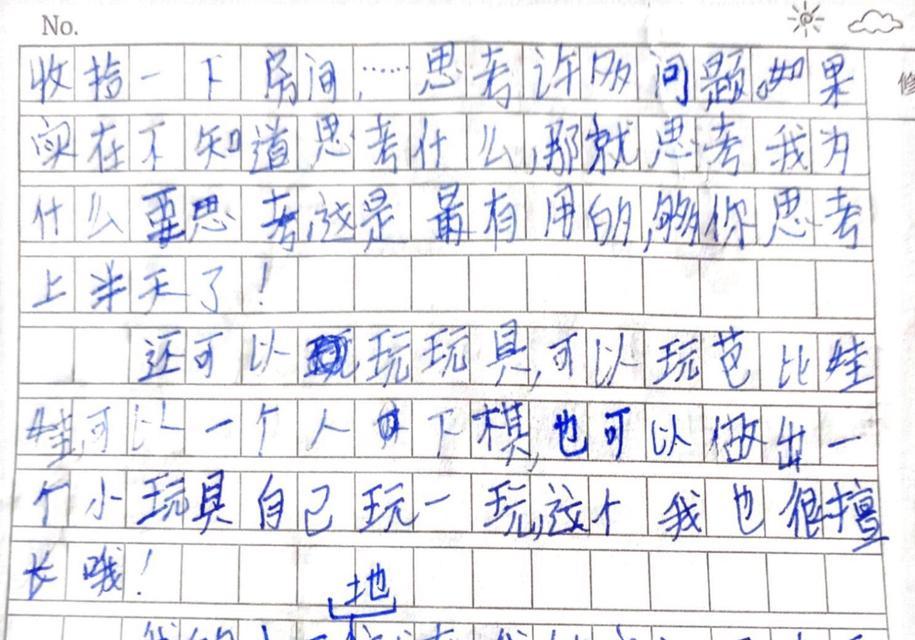 No.
收拾一下房间,……思考许多问题。如果
修
实在不知道思考什么,那就思考我为
什么要思考,这是最有用的,够你思考
上半天了!
还可以玩玩具,可以玩芭比娃
娃,可以一个人下棋,也可以做出一
个小玩具自己玩一玩,这个我也很擅
长哦!
地